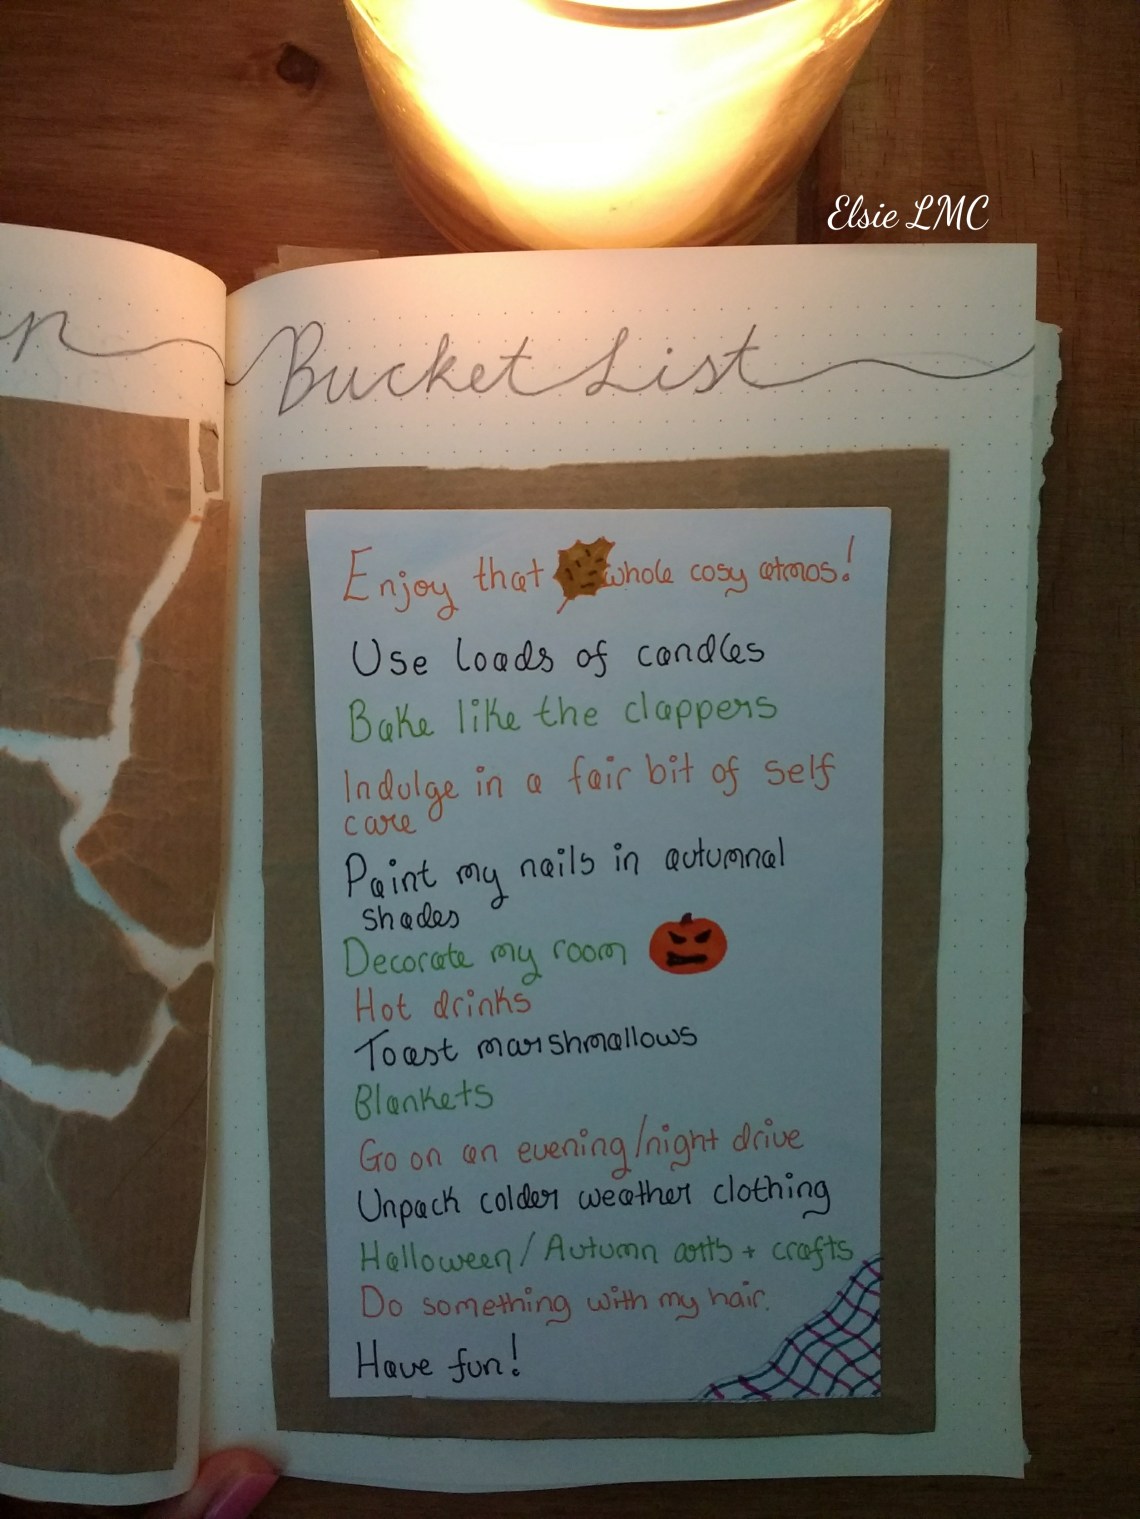 Elsie LMC
n
Bucket List
Enjoy that whole cosy atmos!
Use loads of candles
Bake like the clappers
Indulge in a fair bit of self
care
Paint my nails in autumnal
shades
Decorate my room
Hot drinks
Toast marshmallows
Blankets
Go on an evening/night drive
Unpack colder weather clothing
Halloween/Autumn arts + crafts
Do something with my hair.
Have fun!